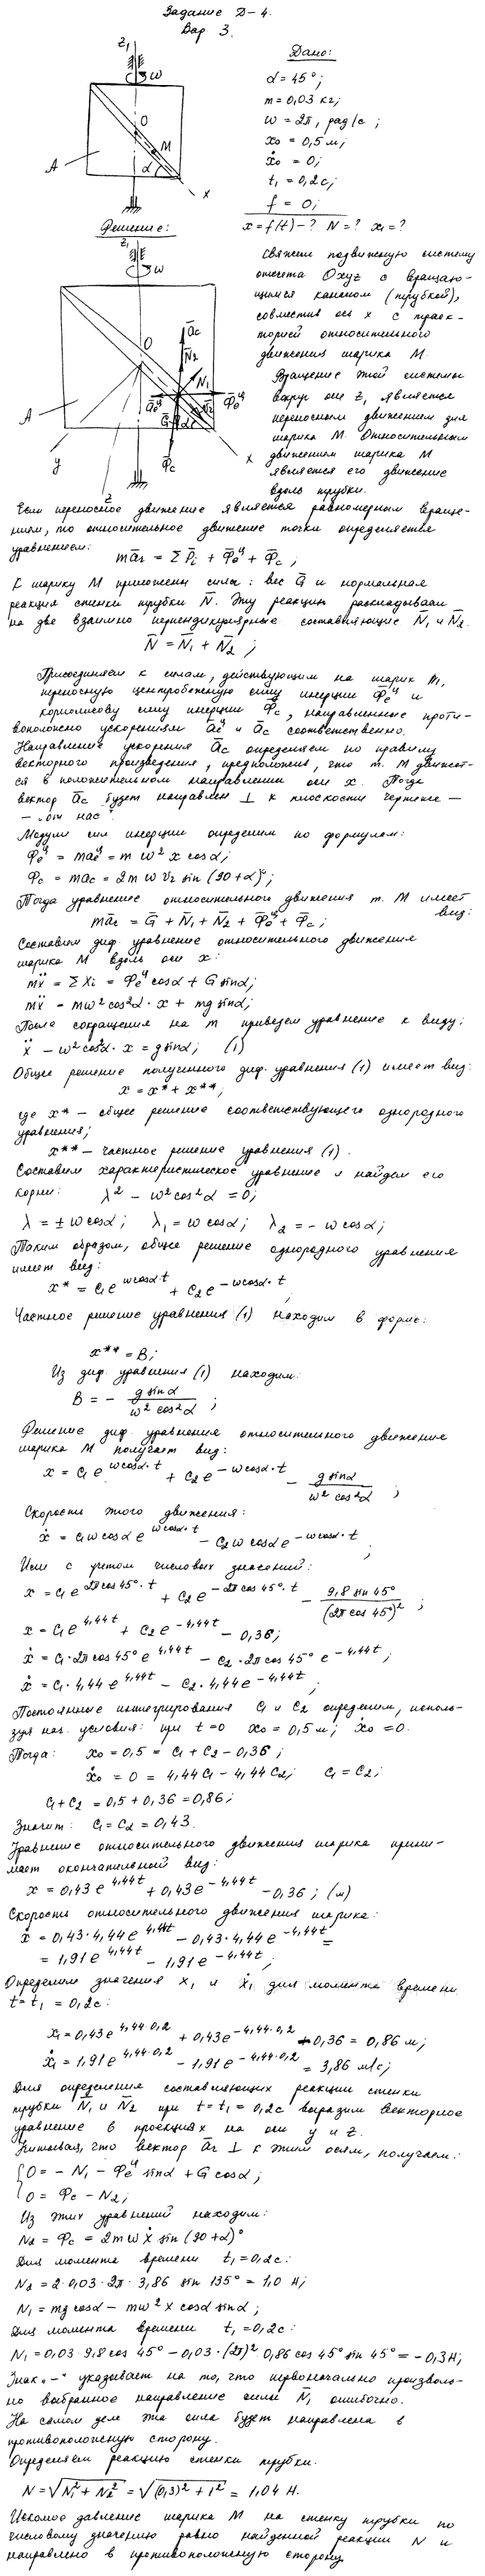 Задание Д-4.
Вар. 3.
Дано:
α = 45°;
m = 0,03 кг;
ω = 2π, рад/с;
x₀ = 0,5 м;
ẋ₀ = 0;
t₁ = 0,2 с;
f = 0;
x = f(t) - ? N = ? x₁ = ?
z₁
ω
O
M
A
α
x
Решение:
z₁
ω
O
āc
N̄₂
N̄₁
āeᶸ
Φ̄eᶸ
Ḡ
α
v̄r
Φ̄c
A
x
y
z
Свяжем подвижную систему
отсчета Oxyz с вращаю-
щимся каналом (трубкой),
совместив ось x с траек-
торией относительного
движения шарика M.
Вращение этой системы
вокруг оси z₁ является
переносным движением для
шарика M. Относительным
движением шарика M
является его движение
вдоль трубки.
Если переносное движение является равномерным враще-
нием, то относительное движение точки определяется
уравнением:
mār = ΣP̄i + Φ̄eᶸ + Φ̄c;
К шарику M приложены силы: вес Ḡ и нормальная
реакция стенки трубки N̄. Эту реакцию раскладываем
на две взаимно перпендикулярные составляющие N̄₁ и N̄₂.
N̄ = N̄₁ + N̄₂;
Присоединяем к силам, действующим на шарик M,
переносную центробежную силу инерции Φ̄eᶸ и
кориолисову силу инерции Φ̄c, направленные проти-
воположно ускорениям āeᶸ и āc соответственно.
Направление ускорения āc определяем по правилу
векторного произведения, предположив, что т. M движет-
ся в положительном направлении оси x. Тогда
вектор āc будет направлен ⊥ к плоскости чертежа —
- „от нас".
Модули сил инерции определим по формулам:
Φeᶸ = maeᶸ = m ω² x cosα;
Φc = mac = 2m ω vr sin (90+α)°;
Тогда уравнение относительного движения т. M имеет
вид:
mār = Ḡ + N̄₁ + N̄₂ + Φ̄eᶸ + Φ̄c;
Составим диф. уравнение относительного движения
шарика M вдоль оси x:
mẍ = Σxi = Φeᶸ cosα + G sinα;
mẍ = mω² cos²α · x + mg sinα;
После сокращения на m приведем уравнение к виду:
ẍ - ω² cos²α · x = g sinα; (1)
Общее решение полученного диф. уравнения (1) имеет вид:
x = x* + x**;
где x* - общее решение соответствующего однородного
уравнения;
x** - частное решение уравнения (1).
Составим характеристическое уравнение и найдем его
корни: λ² - ω² cos²α = 0;
λ = ± ω cosα; λ₁ = ω cosα; λ₂ = - ω cosα;
Таким образом, общее решение однородного уравнения
имеет вид:
x* = c₁ e^(ω cosα t) + c₂ e^(-ω cosα · t);
Частное решение уравнения (1) находим в форме:
x** = B;
Из диф. уравнения (1) находим:
B = - g sinα / ω² cos²α;
Решение диф. уравнения относительного движения
шарика M получает вид:
x = c₁ e^(ω cosα · t) + c₂ e^(-ω cosα · t) - g sinα / ω² cos²α;
Скорость этого движения:
ẋ = c₁ ω cosα e^(ω cosα · t) - c₂ ω cosα e^(-ω cosα · t);
Или с учетом числовых значений:
x = c₁ e^(2π cos 45° · t) + c₂ e^(-2π cos 45° · t) - 9,8 sin 45° / (2π cos 45°)²;
x = c₁ e^(4,44 t) + c₂ e^(-4,44 t) - 0,36;
ẋ = c₁ · 2π cos 45° e^(4,44 t) - c₂ · 2π cos 45° e^(-4,44 t);
ẋ = c₁ · 4,44 e^(4,44 t) - c₂ · 4,44 e^(-4,44 t);
Постоянные интегрирования c₁ и c₂ определим, исполь-
зуя нач. условия: при t=0 x₀ = 0,5 м; ẋ₀ = 0.
Тогда: x₀ = 0,5 = c₁ + c₂ - 0,36;
ẋ₀ = 0 = 4,44 c₁ - 4,44 c₂; c₁ = c₂;
c₁ + c₂ = 0,5 + 0,36 = 0,86;
Значит: c₁ = c₂ = 0,43.
Уравнение относительного движения шарика прини-
мает окончательный вид:
x = 0,43 e^(4,44t) + 0,43 e^(-4,44t) - 0,36; (м)
Скорость относительного движения шарика:
ẋ = 0,43 · 4,44 e^(4,44t) - 0,43 · 4,44 e^(-4,44t) =
= 1,91 e^(4,44t) - 1,91 e^(-4,44t);
Определим значения x₁ и ẋ₁ для момента времени
t = t₁ = 0,2 с:
x₁ = 0,43 e^(4,44·0,2) + 0,43 e^(-4,44·0,2) - 0,36 = 0,86 м;
ẋ₁ = 1,91 e^(4,44·0,2) - 1,91 e^(-4,44·0,2) = 3,86 м/с;
Для определения составляющих реакции стенки
трубки N̄₁ и N̄₂ при t = t₁ = 0,2 с выразим векторное
уравнение в проекциях на оси y и z.
Учитывая, что вектор ār ⊥ к этим осям, получаем:
0 = - N₁ - Φeᶸ sinα + G cosα;
0 = Φc - N₂;
Из этих уравнений находим:
N₂ = Φc = 2m ω ẋ sin (90+α)°
Для момента времени t₁ = 0,2 с:
N₂ = 2 · 0,03 · 2π · 3,86 sin 135° = 1,0 Н;
N₁ = mg cosα - mω² x cosα sinα;
Для момента времени t₁ = 0,2 с:
N₁ = 0,03 · 9,8 cos 45° - 0,03 · (2π)² · 0,86 cos 45° sin 45° = - 0,3 Н;
Знак „-" указывает на то, что первоначально произволь-
но выбранное направление силы N̄₁ ошибочно.
На самом деле эта сила будет направлена в
противоположную сторону.
Определяем реакцию стенки трубки.
N = √N₁² + N₂² = √(0,3)² + 1² = 1,04 Н.
Искомое давление шарика M на стенку трубки по
числовому значению равно найденной реакции N и
направлено в противоположную сторону